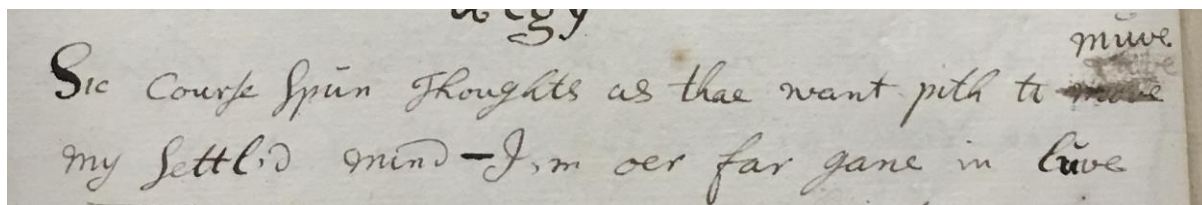 mūve
Sic Courſe ſpūn Thoughts as thae want pith to move
my ſettl'd mind – I,m oer far gane in lūve